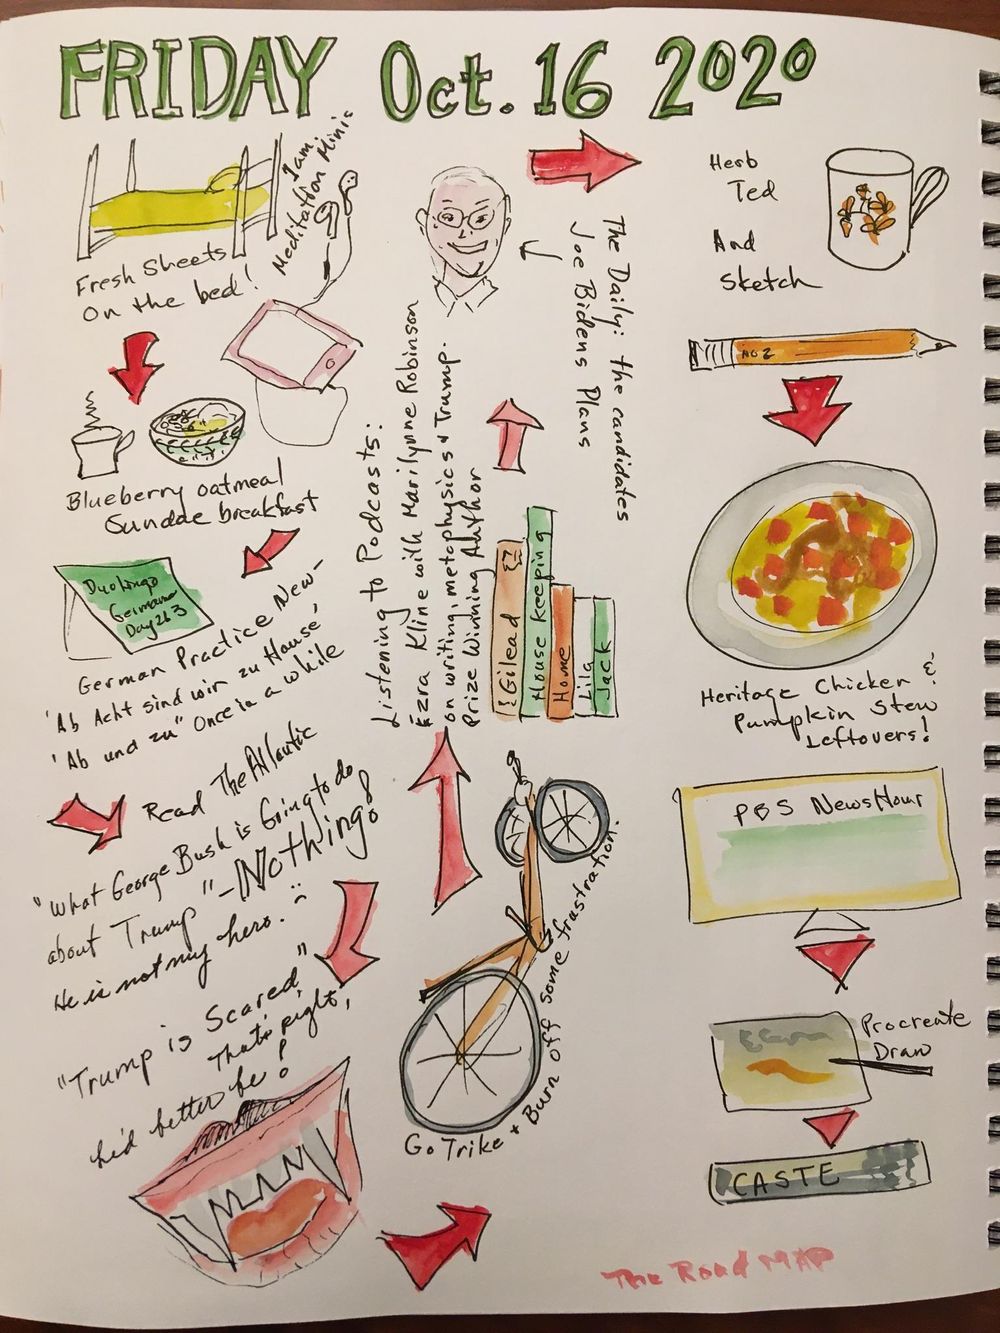 FRIDAY Oct. 16 2020
1am
Meditation Minis
Fresh Sheets
On the bed!
Blueberry oatmeal
Sundae breakfast
Duo Lingo
German
Day 263
German Practice New-
'Ab Acht sind wir zu House'
'Ab und zu" Once in a while
Read The Atlantic
"What George Bush is Going to do
about Trump" - Nothing!
He is not my hero.
"Trump is Scared,"
That's right,
he'd better be!
Go Trike + Burn off some frustration.
Listening to Podcasts:
Ezra Kline with Marilynne Robinson
on writing, metophysics & Trump.
Prize Winning Author
Gilead
House Keeping
Home
Lila
Jack
The Daily: the candidates
Joe Bidens Plans
Herb
Ted
And
Sketch
NO 2
Heritage Chicken &
Pumpkin Stew
Leftovers!
PBS NewsHour
Procreate
Draw
CASTE
The Road MAP